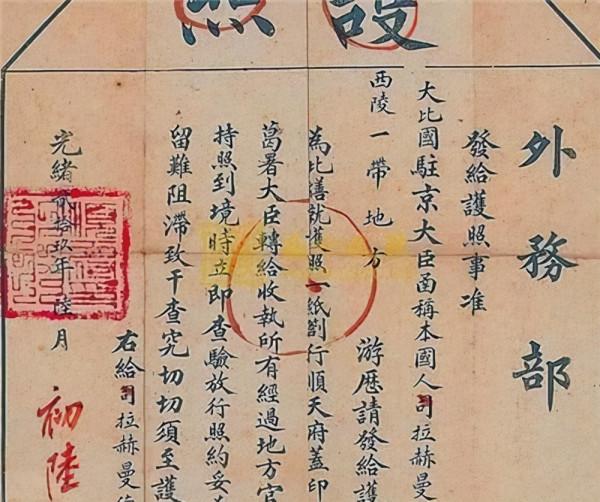 護照
外務部
發給護照事准
大比國駐京大臣函稱本國人司拉赫曼
西陵一帶地方
游歷請發給護
為此繕就護照一紙劄行順天府蓋印
葛署大臣轉給收執所有經過地方官
持照到境時立即查驗放行照約妥
留難阻滯致干查究切切須至護
右給司拉赫曼
光緒貳拾玖年陸月
初陸